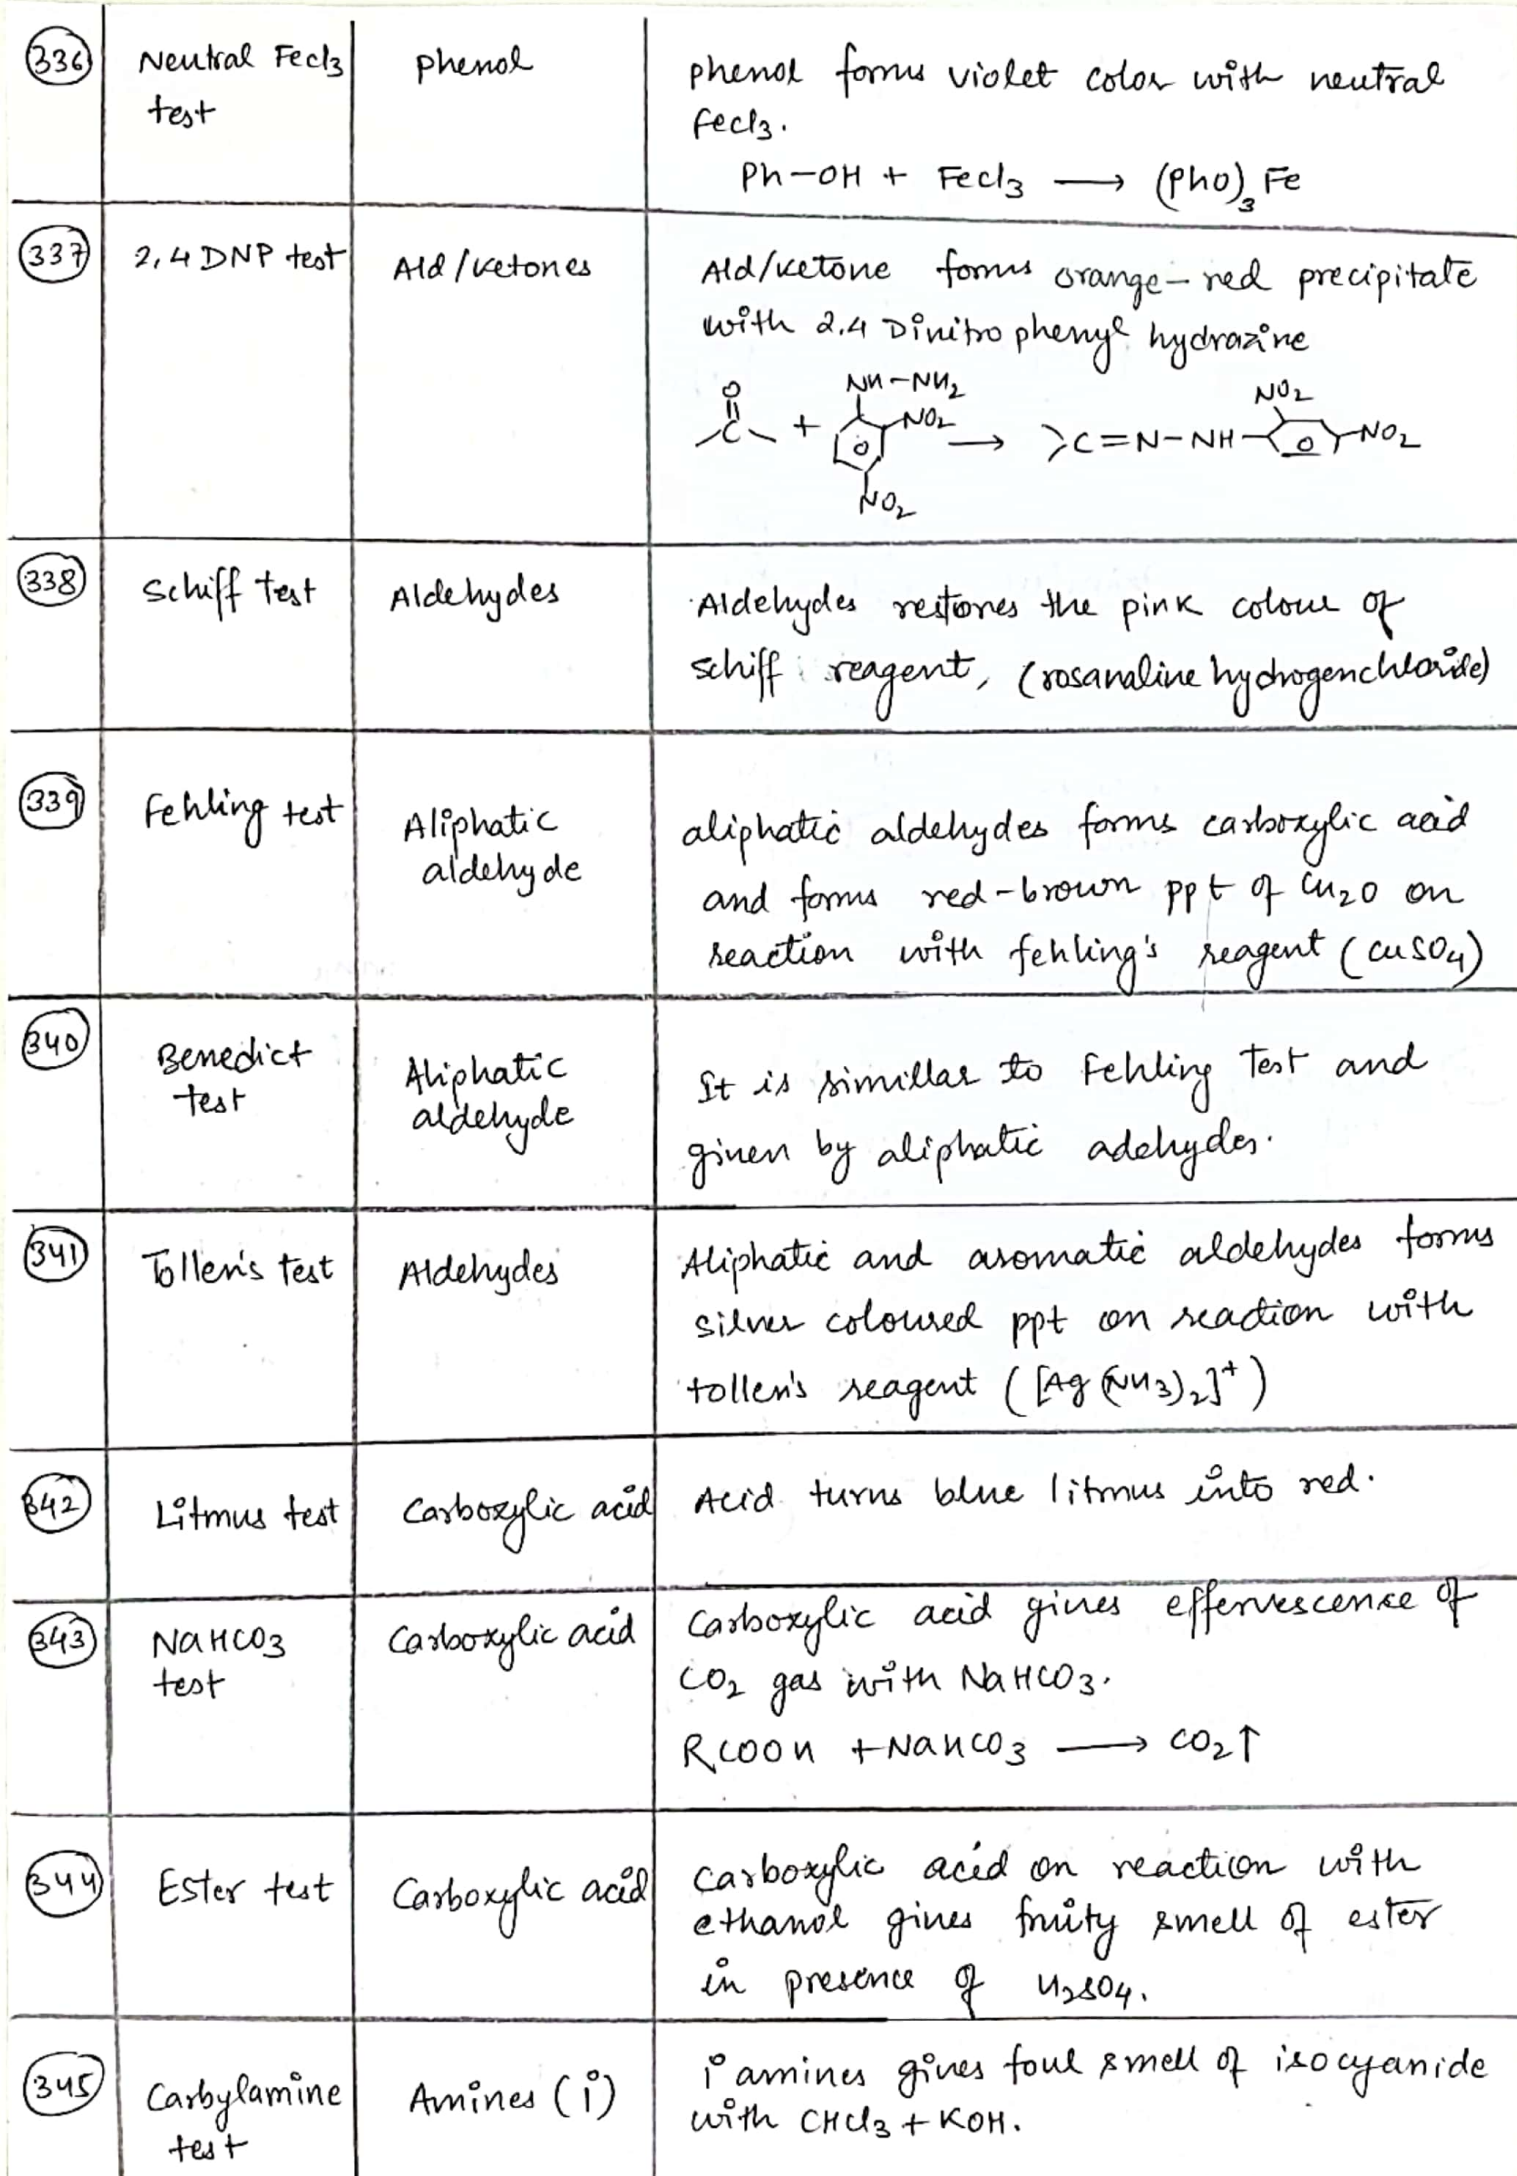 336 Neutral Fecl3 test phenol phenol forms violet color with neutral
fecl3.
Ph-OH + Fecl3 → (Pho)3 Fe
337 2,4 DNP test Ald/ketones Ald/ketone forms orange-red precipitate
with 2,4 Dinitro phenyl hydrazine
O
-C- + NH-NH2 NO2 NO2 → >C=N-NH- NO2 -NO2
338 Schiff test Aldehydes Aldehydes restores the pink colour of
schiff reagent, (rosanaline hydrogenchloride)
339 Fehling test Aliphatic aldehyde aliphatic aldehydes forms carboxylic acid
and forms red-brown ppt of Cu2O on
reaction with fehling's reagent (CuSO4)
340 Benedict test Aliphatic aldehyde It is simillar to Fehling Test and
given by aliphatic adehydes.
341 Tollen's test Aldehydes Aliphatic and aromatic aldehydes forms
silver coloured ppt on reaction with
tollen's reagent ([Ag(NH3)2]+)
342 Litmus test Carboxylic acid Acid turns blue litmus into red.
343 NaHCO3 test Carboxylic acid Carboxylic acid gives effervescence of
CO2 gas with NaHCO3.
RCOOH + NaHCO3 → CO2↑
344 Ester test Carboxylic acid Carboxylic acid on reaction with
ethanol gives fruity smell of ester
in presence of H2SO4.
345 Carbylamine test Amines (i) i amines gives foul smell of isocyanide
with CHCl3 + KOH.